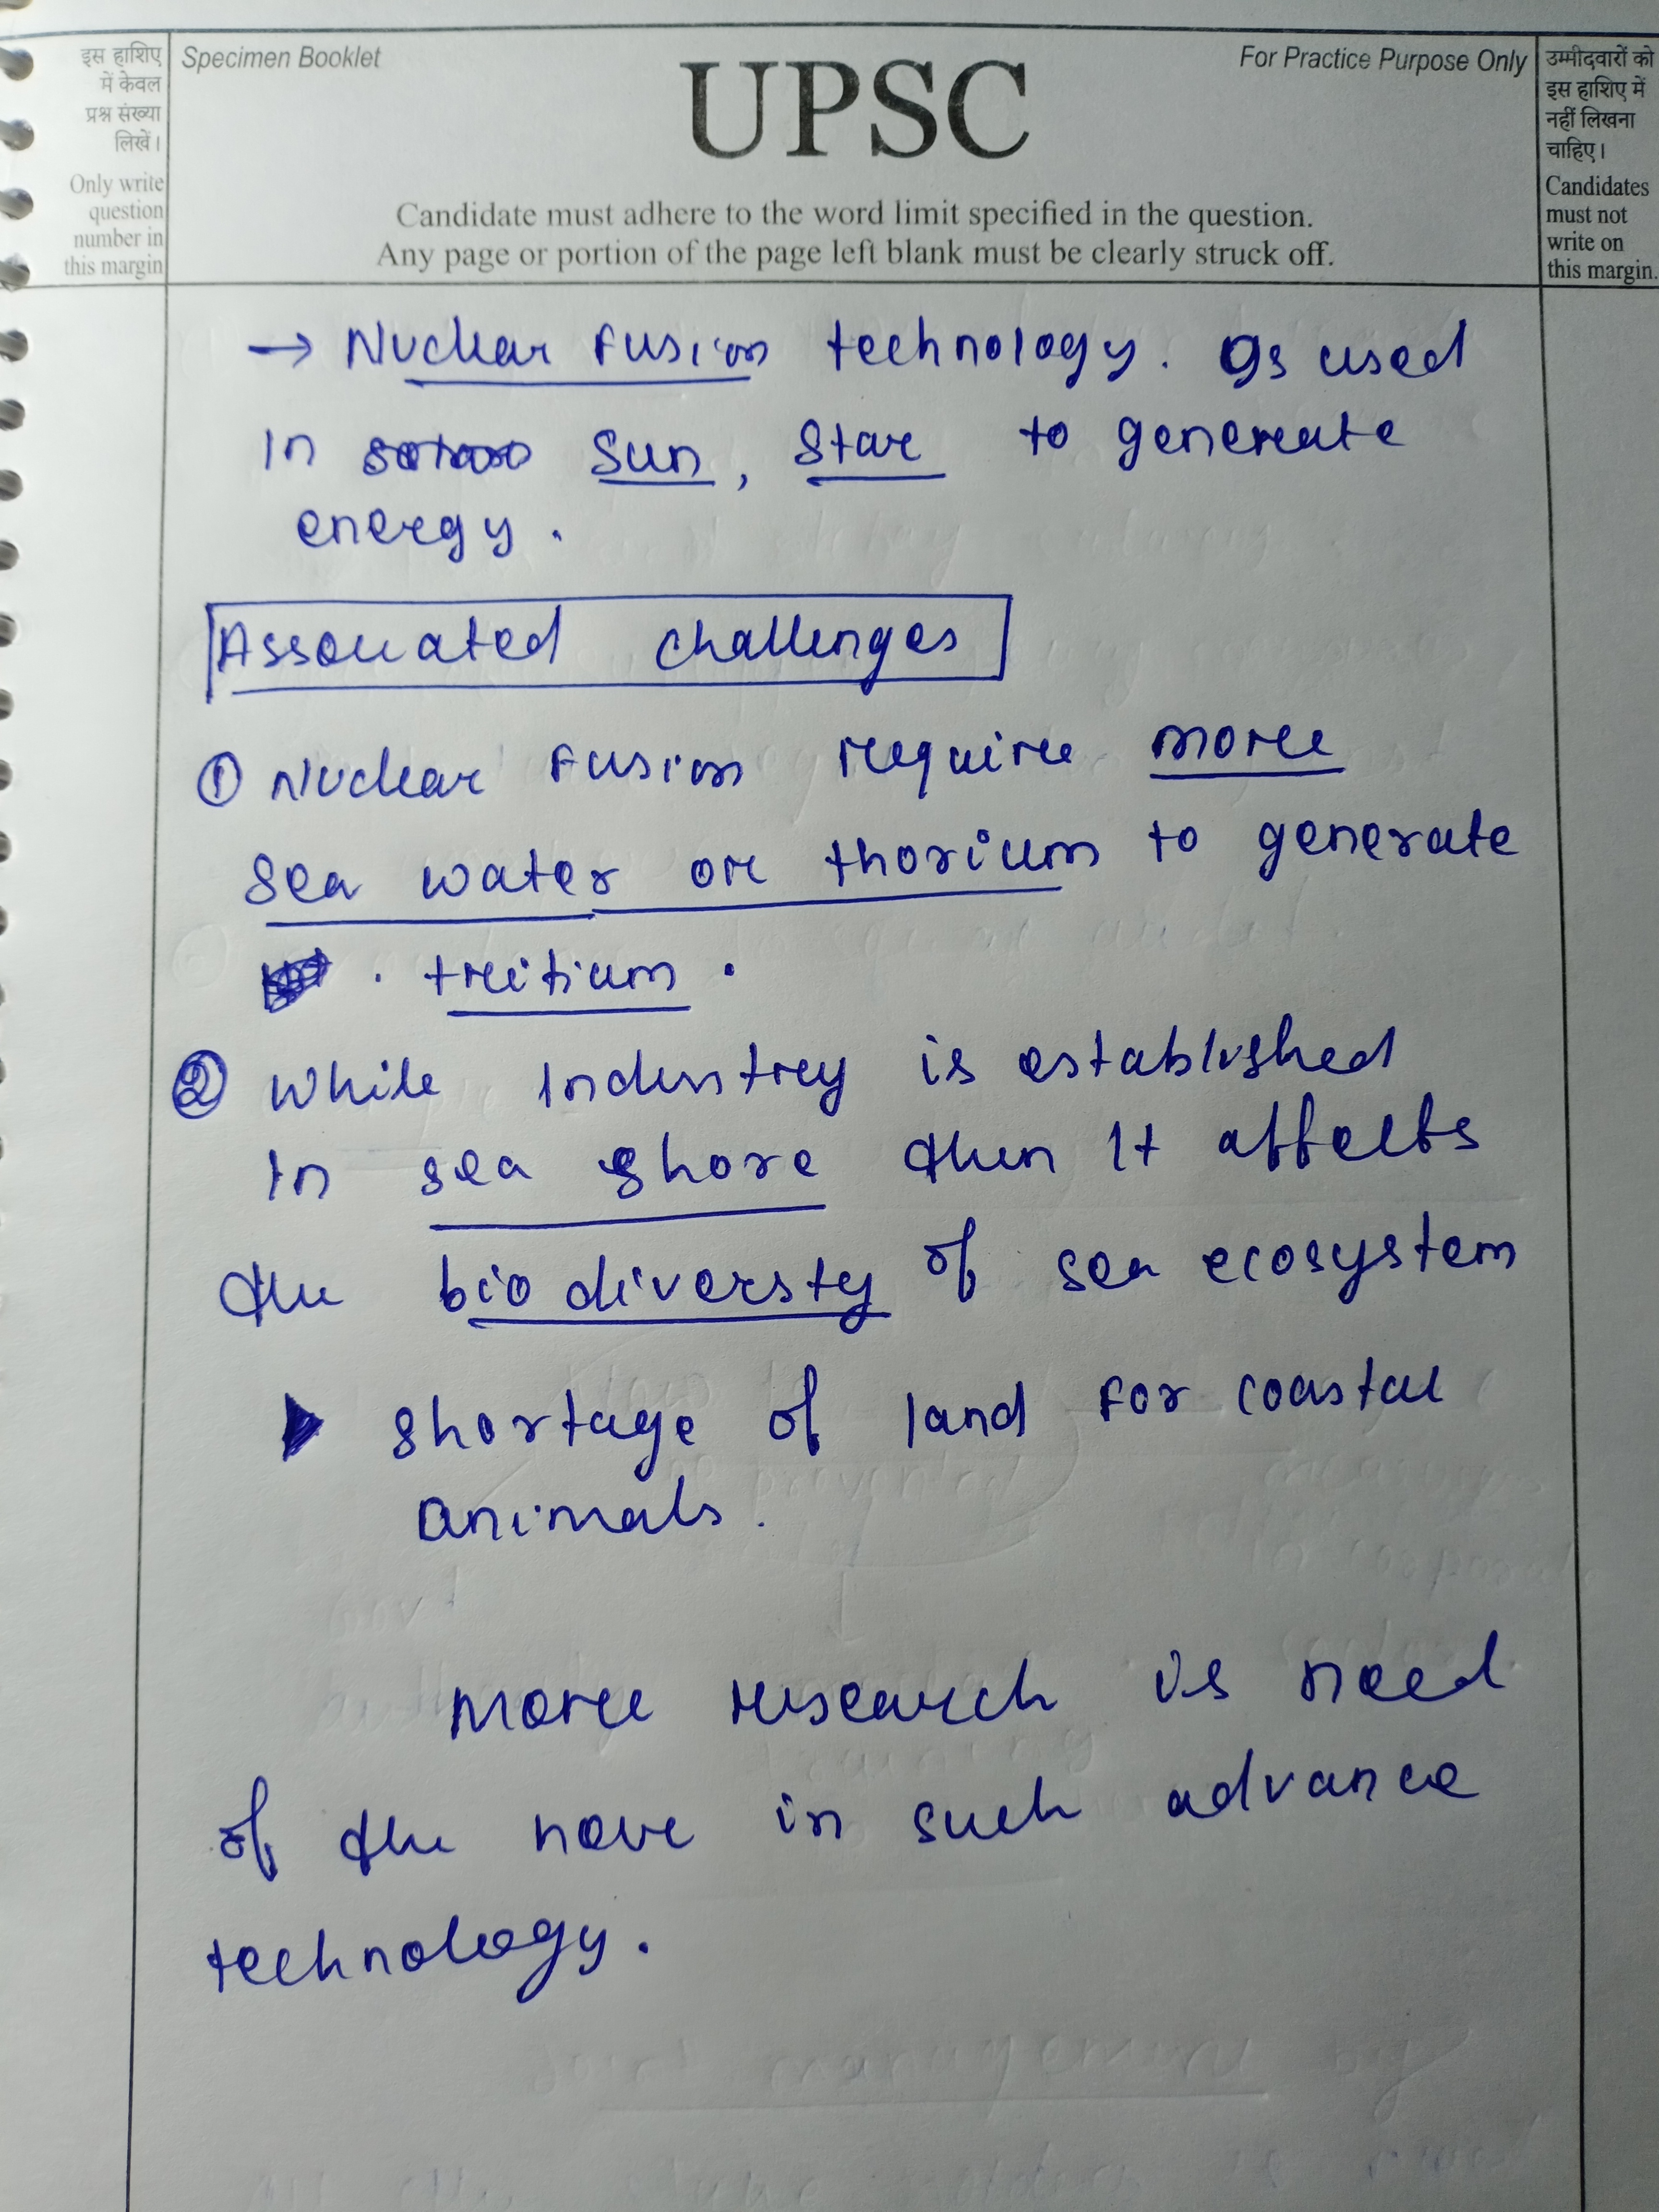 इस हाशिए
में केवल
प्रश्न संख्या
लिखें।
Only write
question
number in
this margin
Specimen Booklet
For Practice Purpose Only
UPSC
Candidate must adhere to the word limit specified in the question.
Any page or portion of the page left blank must be clearly struck off.
उम्मीदवारों को
इस हाशिए में
नहीं लिखना
चाहिए।
Candidates
must not
write on
this margin.
→ Nuclear fusion technology. Is used
in Sun, Star to genereate
energy.
Associated challenges
① Nuclear fusion require more
sea water or thorium to generate
. tritium .
② While Industry is established
In sea shore then It affects
the bio diversty of sea ecosystem
▶ Shortage of land for coastal
animals.
More research is need
of the hour in such advance
technology.